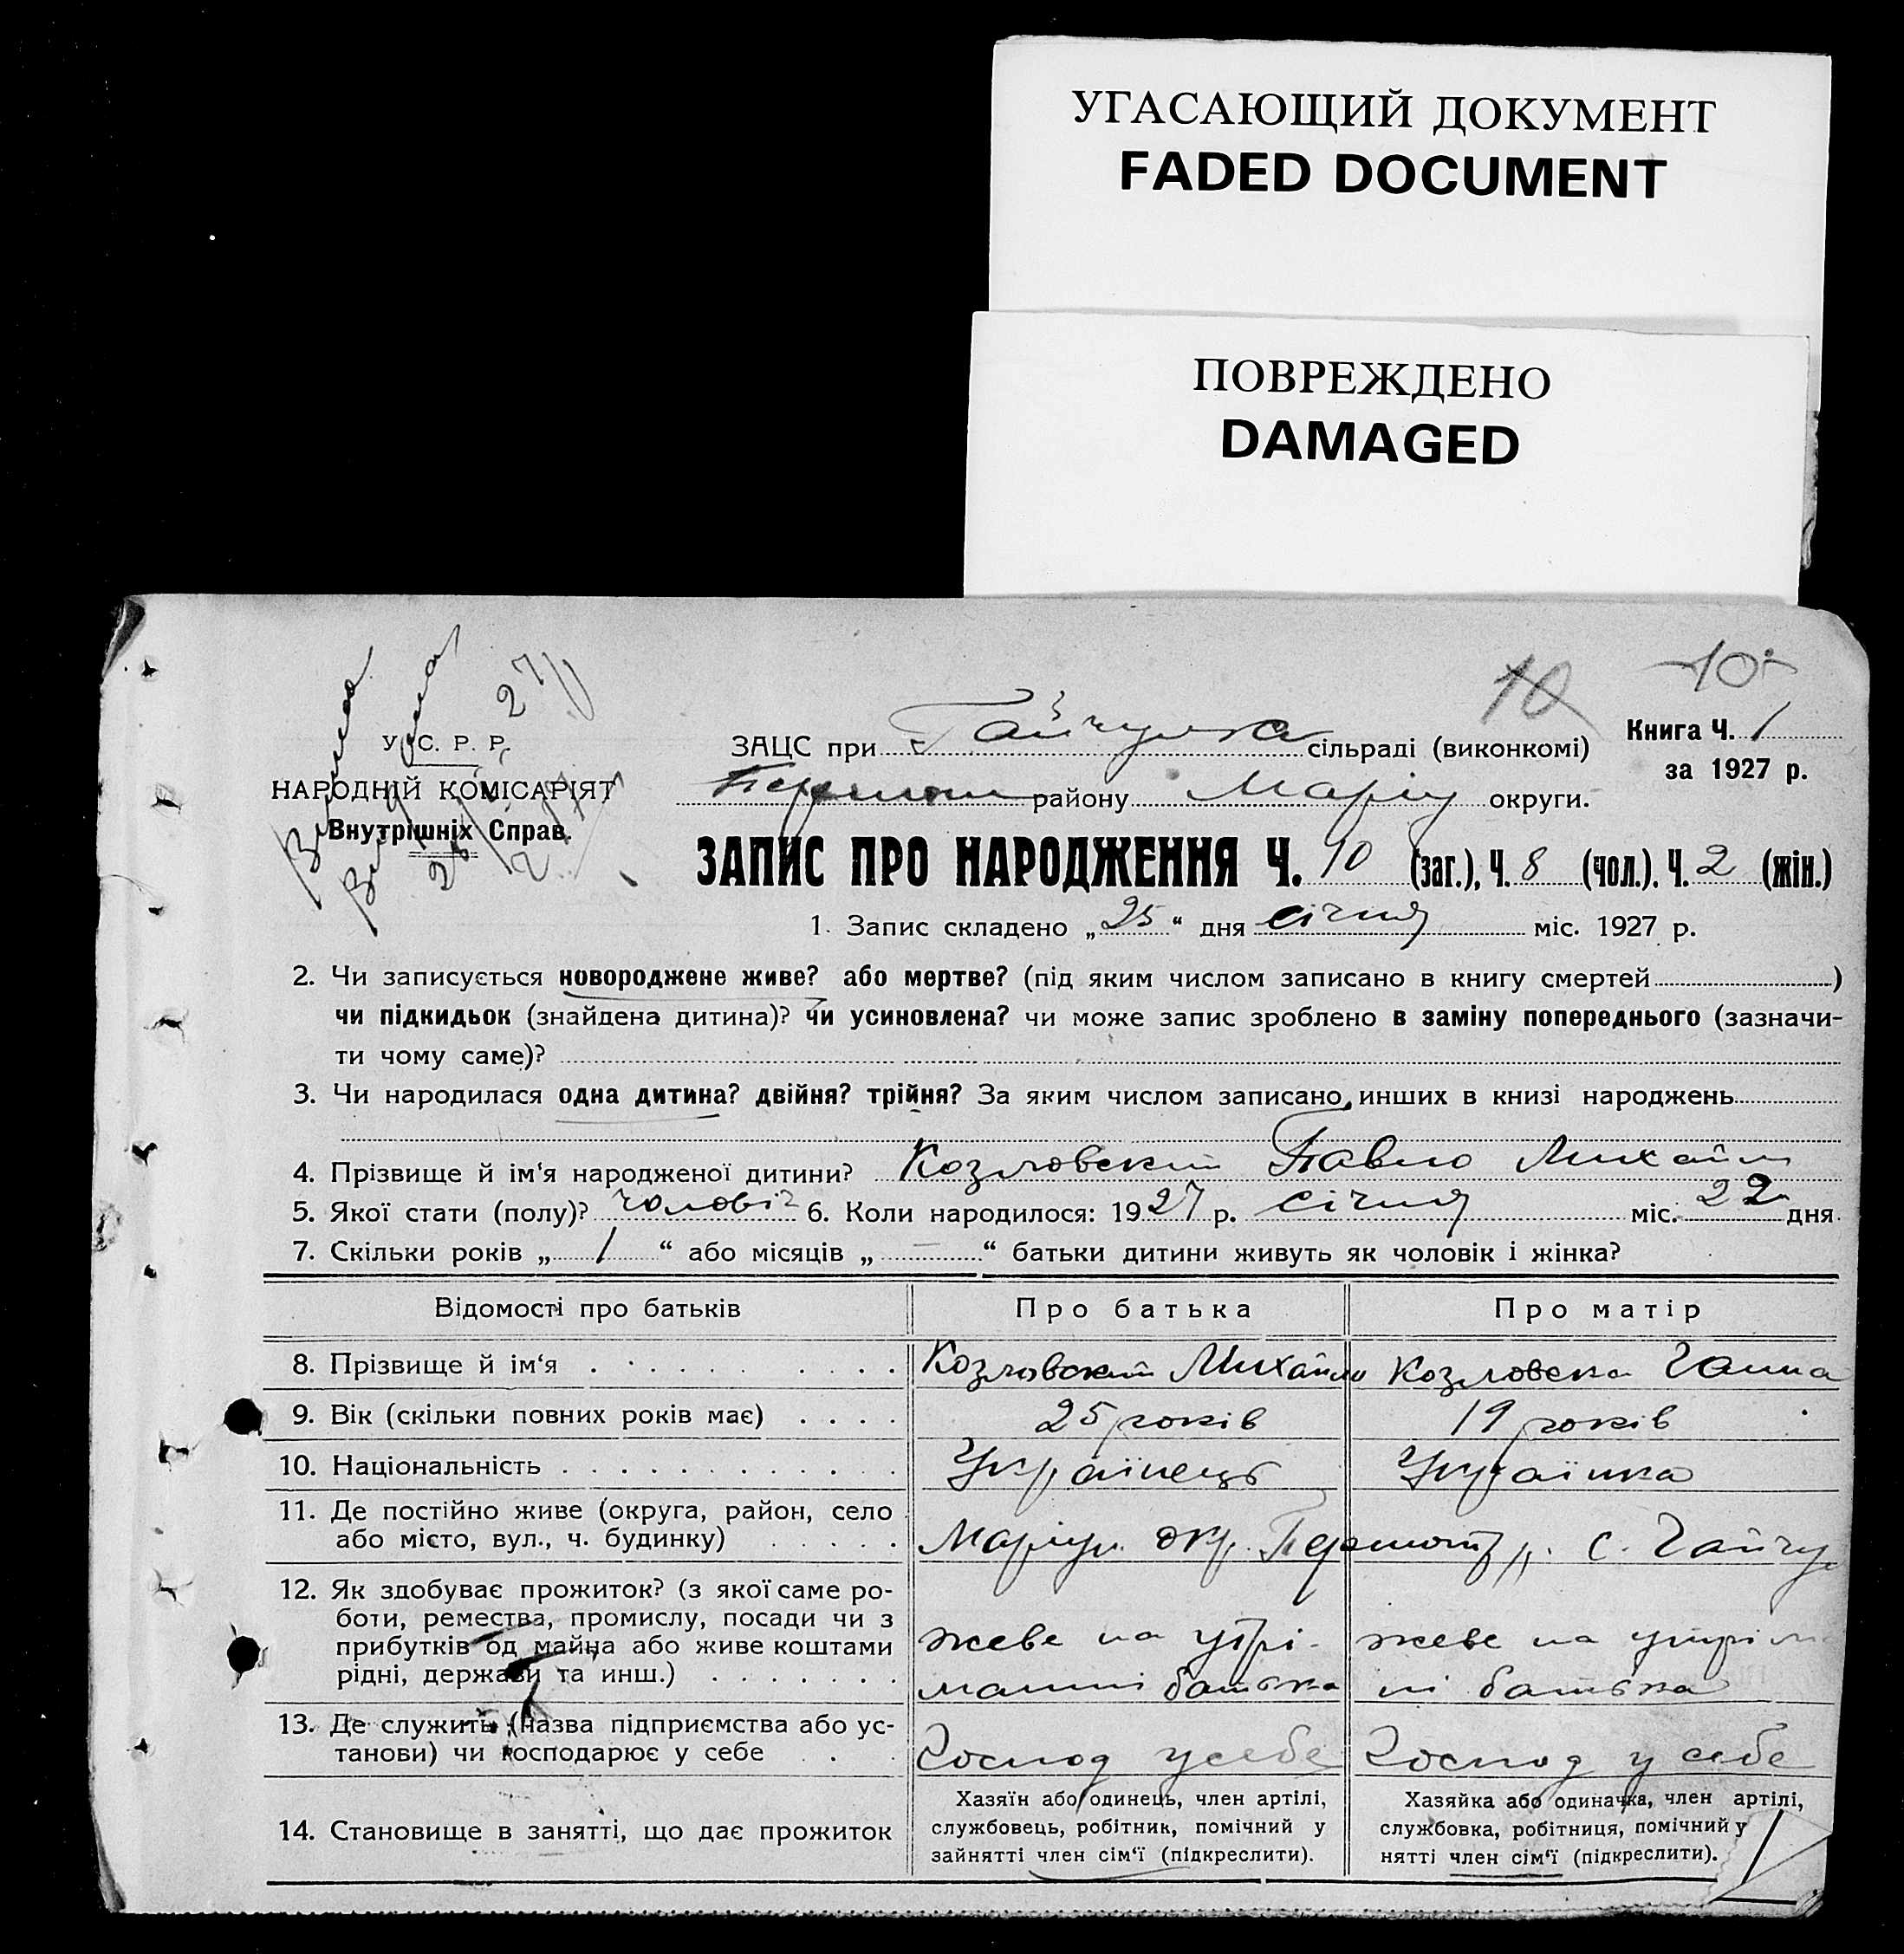 УГАСАЮЩИЙ ДОКУМЕНТ
FADED DOCUMENT
ПОВРЕЖДЕНО
DAMAGED
10 10
У. С. Р. Р.
НАРОДНІЙ КОМІСАРІЯТ
Внутрішніх Справ.
ЗАЦС при Гайчулска сільраді (виконкомі)
Книга Ч. 1
за 1927 р.
району Маріу округи.
ЗАПИС ПРО НАРОДЖЕННЯ Ч. 10 (заг.), Ч. 8 (чол.). Ч. 2 (жін.)
1. Запис складено „25“ дня січня міс. 1927 р.
2. Чи записується новороджене живе? або мертве? (під яким числом записано в книгу смертей )
чи підкидьок (знайдена дитина)? чи усиновлена? чи може запис зроблено в заміну попереднього (зазначи-
ти чому саме)?
3. Чи народилася одна дитина? двійня? трійня? За яким числом записано инших в книзі народжень
4. Прізвище й ім‘я народженої дитини? Козловский Павло Михайл
5. Якої стати (полу)? чоловіч 6. Коли народилося: 1927 р. січня міс. 22 дня.
7. Скільки років „ 1 “ або місяців „ — “ батьки дитини живуть як чоловік і жінка?
Відомості про батьків Про батька Про матір
8. Прізвище й ім‘я Козловский Михайло Козловска Ганна
9. Вік (скільки повних років має) 25 років 19 років
10. Національність Українець Українка
11. Де постійно живе (округа, район, село
або місто, вул., ч. будинку) Маріуп. окр. р. с. Гайчу
12. Як здобуває прожиток? (з якої саме ро-
боти, ремества, промислу, посади чи з
прибутків од майна або живе коштами
рідні, держави та инш.)
жеве на утрі-
манні батька
жеве на утрім
ні батька
13. Де служить (назва підприємства або ус-
танови) чи господарює у себе
Господ у себе Господ у себе
14. Становище в занятті, що дає прожиток
Хазяїн або одинець, член артілі,
службовець, робітник, помічний у
зайнятті член сім‘ї (підкреслити).
Хазяйка або одиначка, член артілі,
службовка, робітниця, помічний у
нятті член сім‘ї (підкреслити).